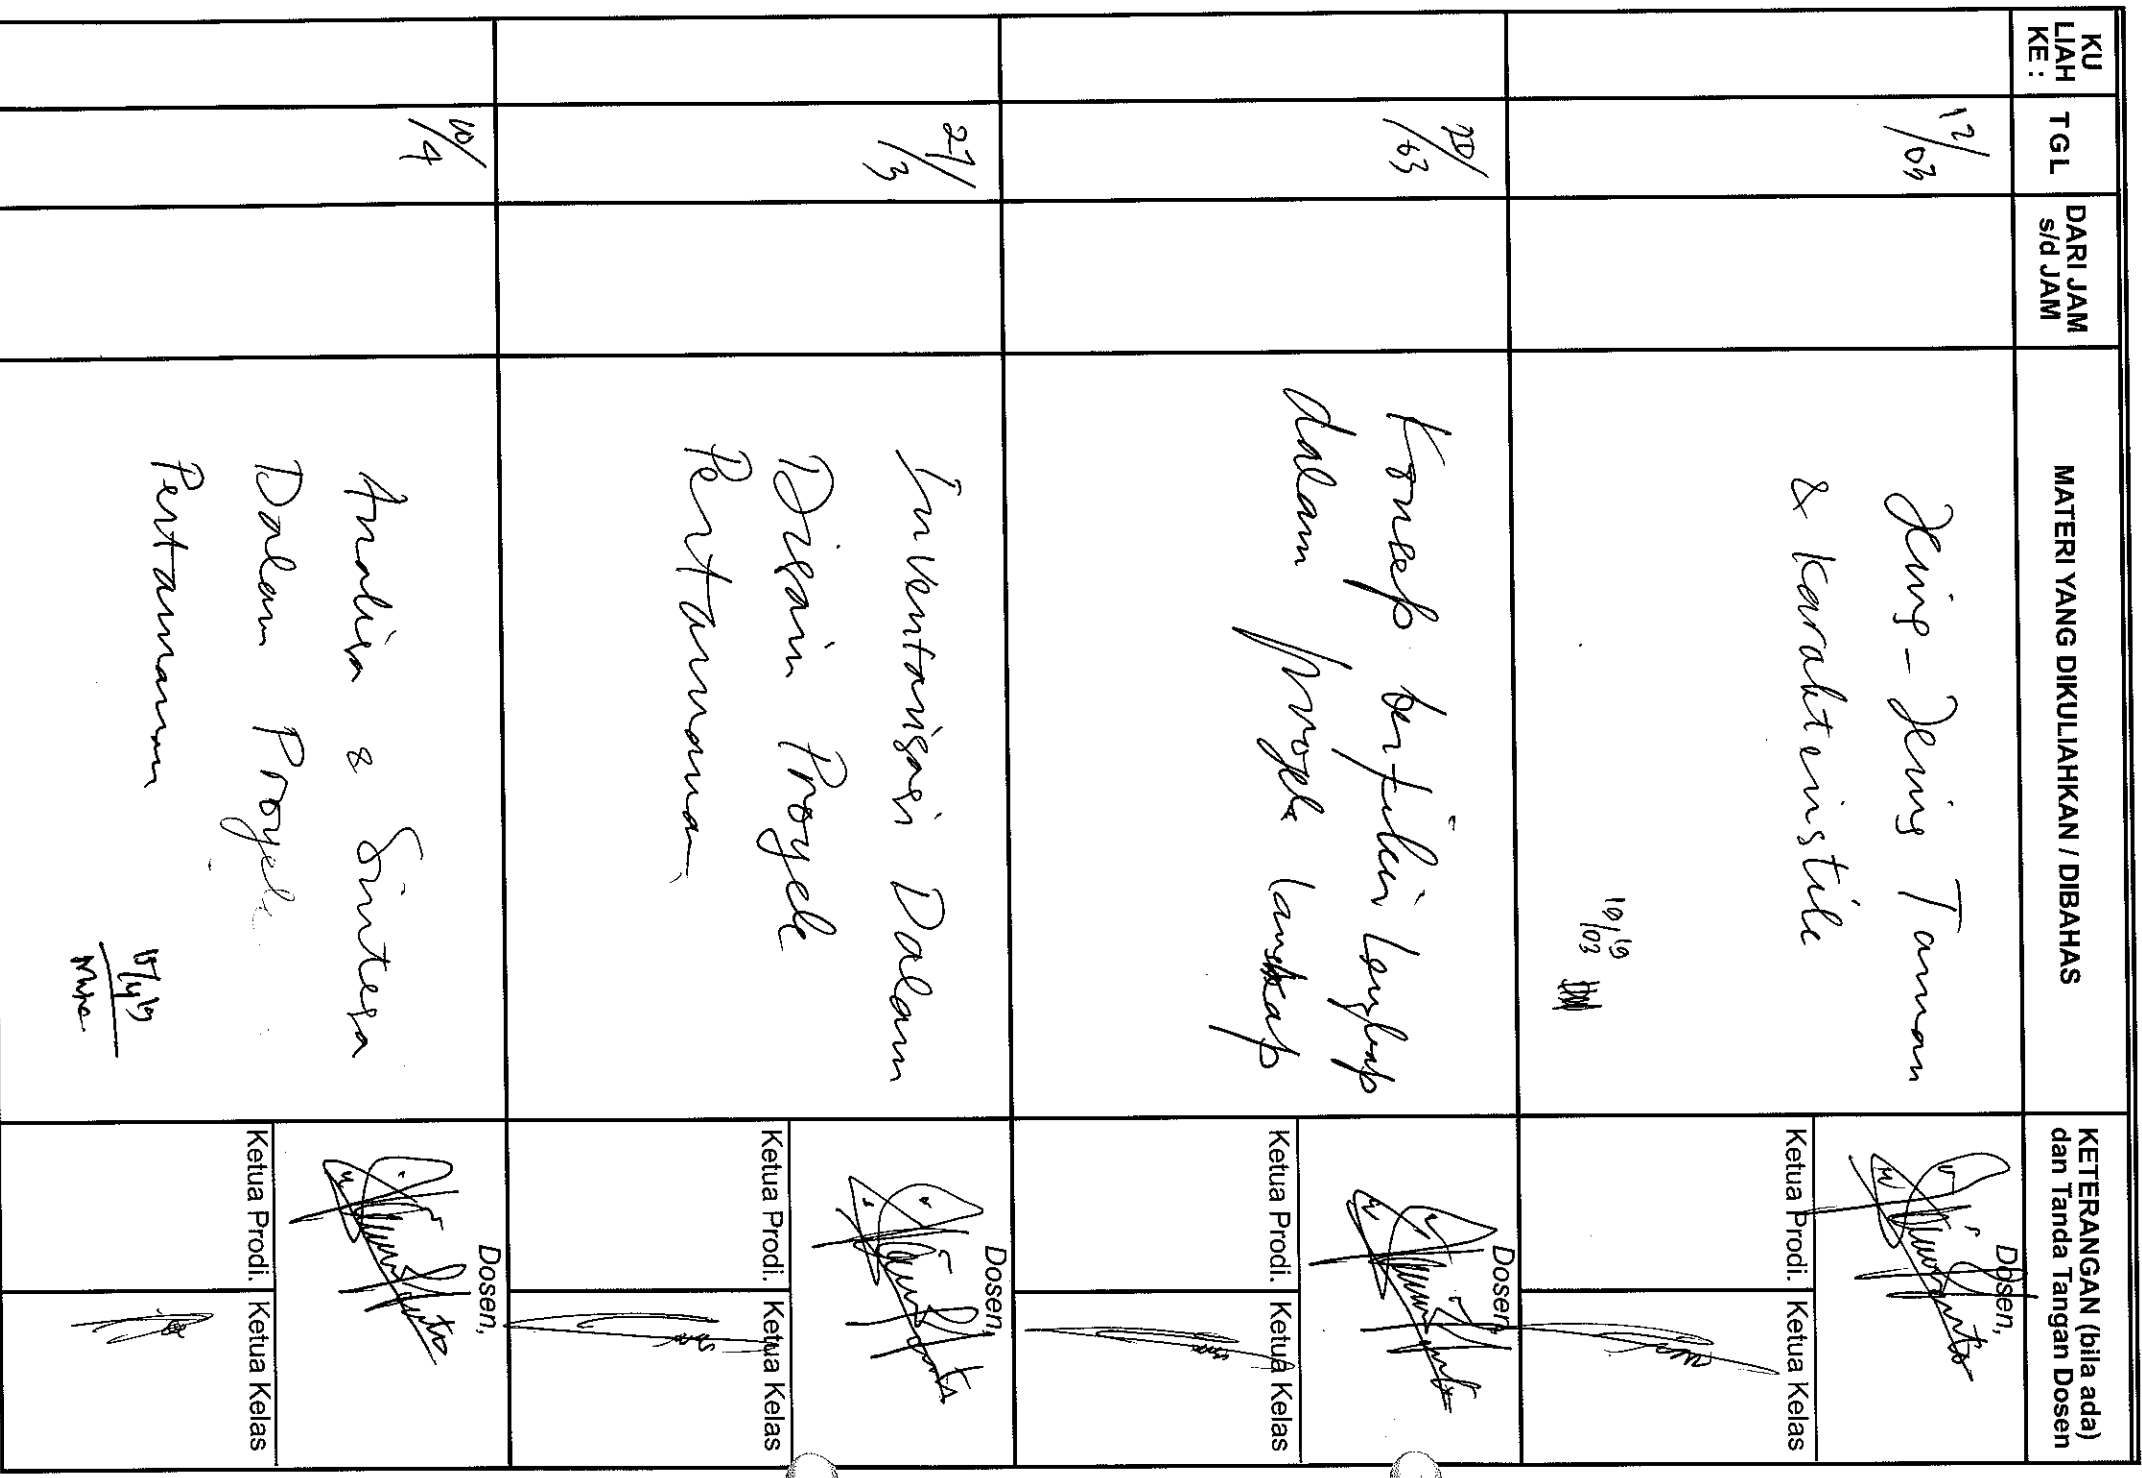 KU
LIAH
KE :
TGL
DARI JAM
s/d JAM
MATERI YANG DIKULIAHKAN / DIBAHAS
KETERANGAN (bila ada)
dan Tanda Tangan Dosen
12/03
Jenis - Jenis Taman
& Karakteristik
19/03
Dosen,
Ketua Prodi.
Ketua Kelas
20/03
Konsep berfikir Lengkap
dalam proyek lanskap
Dosen,
Ketua Prodi.
Ketua Kelas
27/3
Inventarisasi Dalam
Disain Proyek
Pertamanan
Dosen,
Ketua Prodi.
Ketua Kelas
10/4
Analisa & Sintesa
Dalam Proyek
Pertamanan
Dosen,
Ketua Prodi.
Ketua Kelas